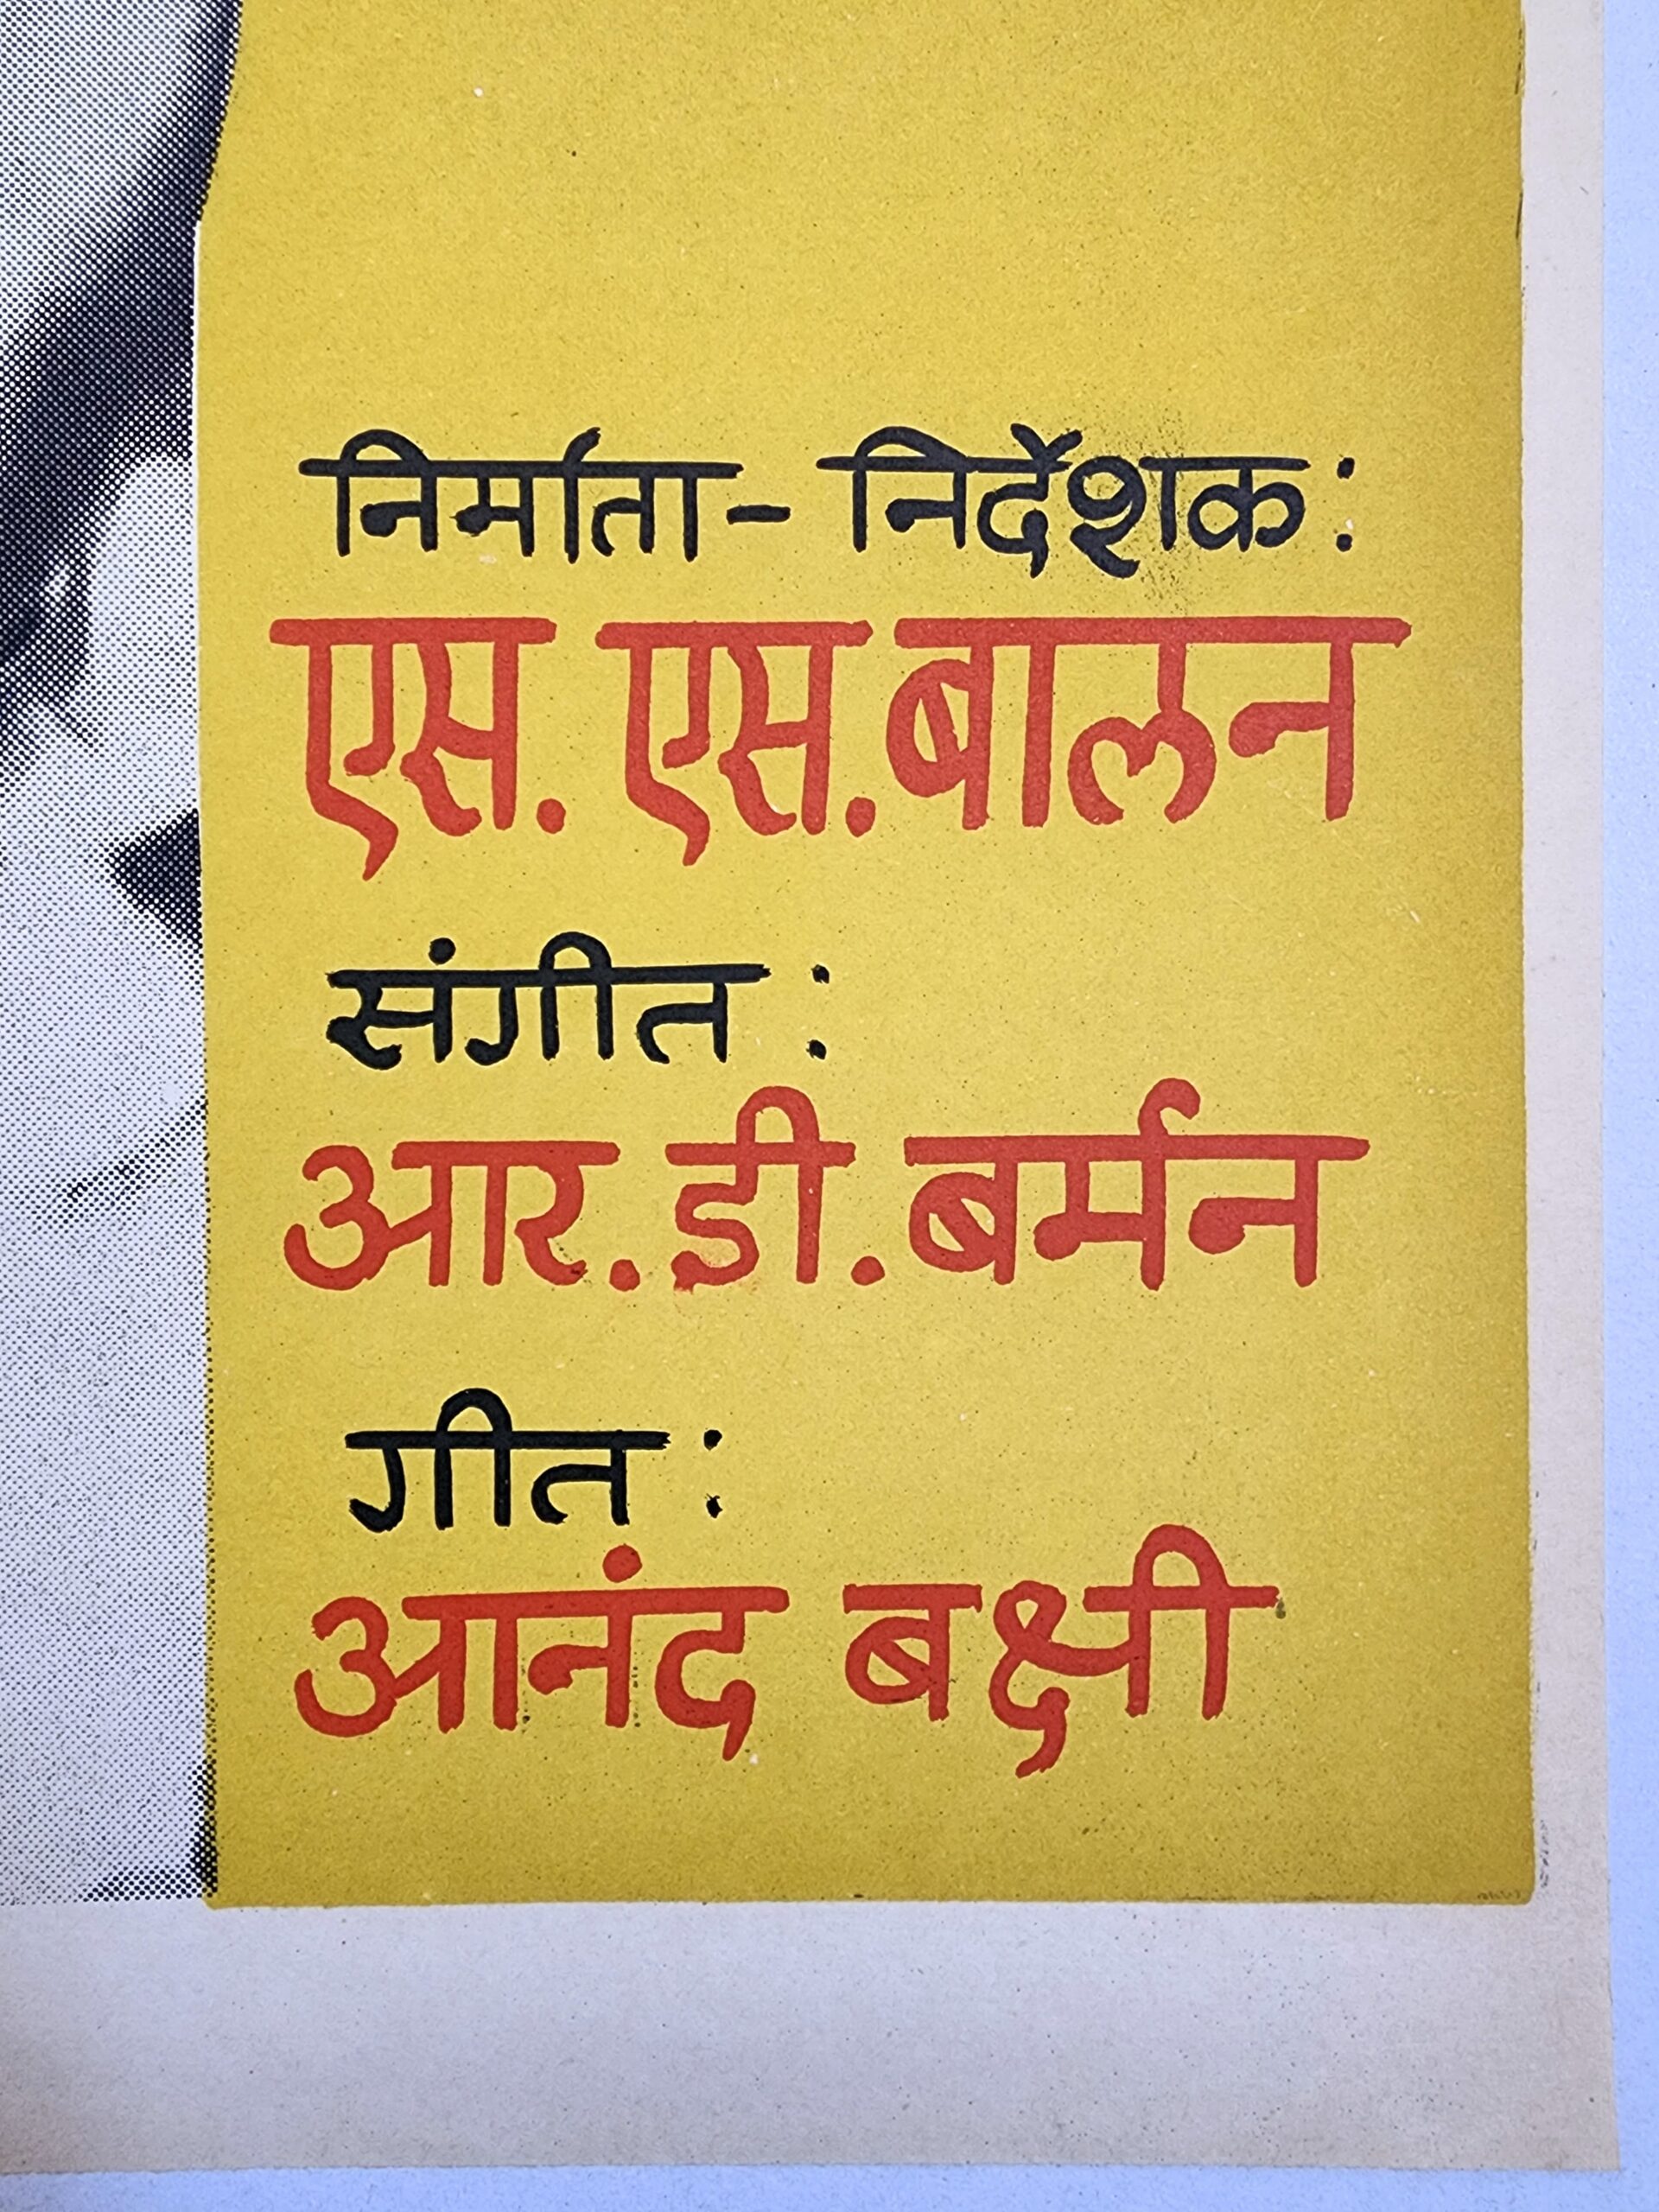 निर्माता - निर्देशक :
एस. एस. बालन
संगीत :
आर. डी. बर्मन
गीत :
आनंद बक्षी